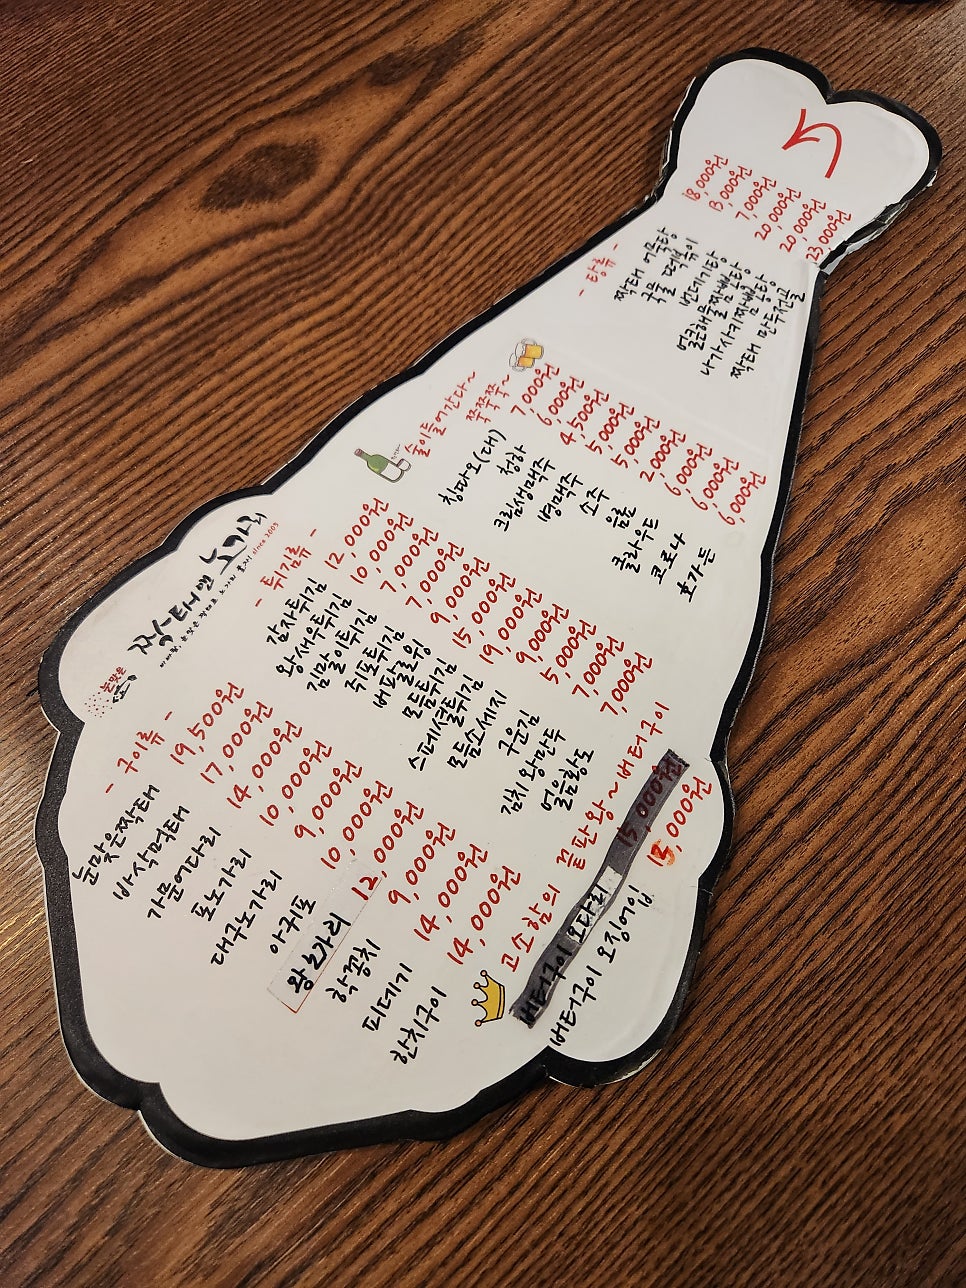 눈맞은
짝태앤노가리
since 2003
- 구이류 -
눈맞은짝태 19,500원
바삭먹태 17,000원
가문어다리 14,000원
포노가리 10,000원
대구노가리 9,000원
아귀포 10,000원
왕노가리 12,000원
학꽁치 9,000원
피데기 14,000원
한치구이 14,000원
고소함의 끝판왕~버터구이
버터구이 오다리 15,000원
버터구이 오징어입 15,000원
- 튀김류 -
감자튀김 12,000원
왕새우튀김 10,000원
김말이튀김 7,000원
쥐포튀김 7,000원
버팔로윙 9,000원
모듬튀김 15,000원
스페셜튀김 19,000원
모듬소세지 9,000원
구운김 5,000원
김치왕만두 7,000원
얼음황도 7,000원
술이들어간다~ 쭉쭉쭉쭉~
칭따오(대) 7,000원
청하 6,000원
크림생맥주 4,500원
병맥주 5,000원
소주 5,000원
음료 2,000원
클라우드 6,000원
코로나 6,000원
호가든 6,000원
- 탕류 -
짝태 어묵탕 18,000원
국물 떡볶이 13,000원
번데기탕 7,000원
얼큰해물짬뽕탕 20,000원
나가사키짬뽕탕 20,000원
짝태 만두전골 23,000원